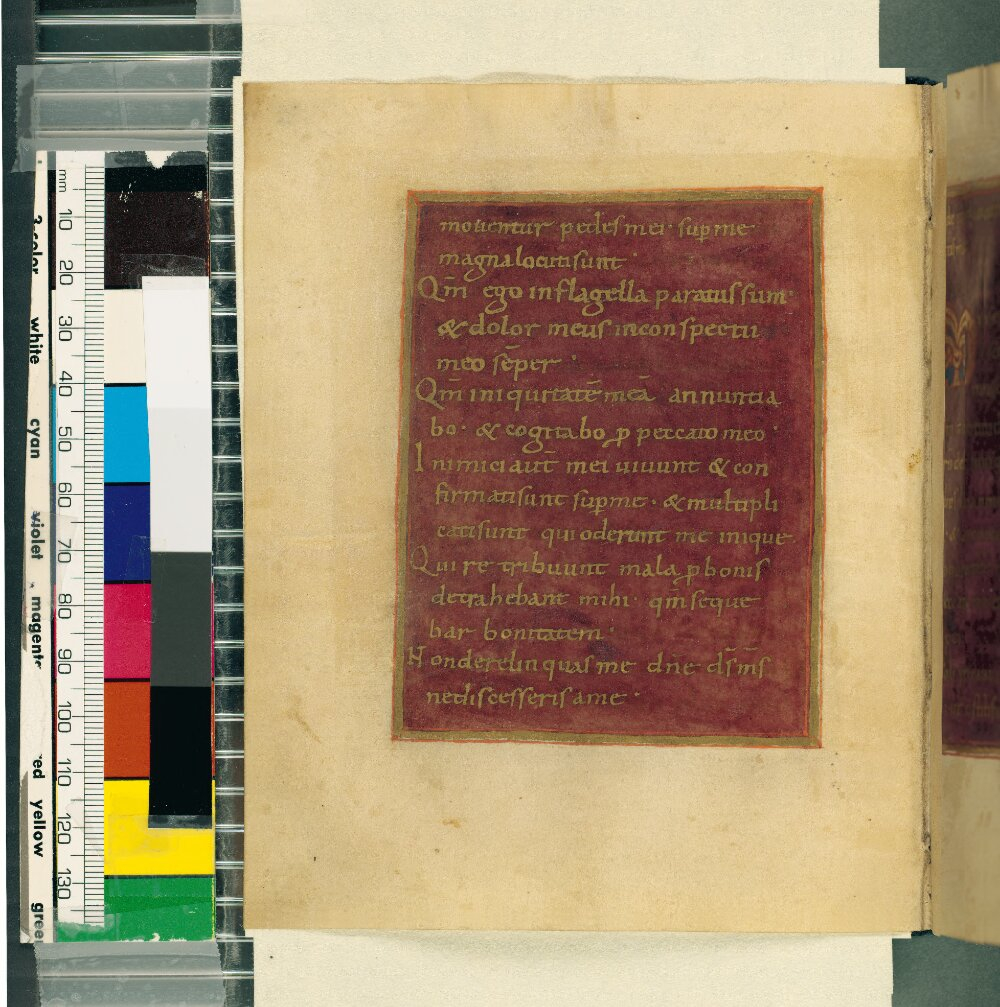 mouentur pedes mei · sup me
magna locuti sunt ·
Qm̄ ego in flagella paratus sum ·
& dolor meus in conspectu
meo sēper ·
Qm̄ iniquitatē meā annuntia
bo · & cogitabo ꝓ peccato meo ·
Inimici aut̄ mei uiuunt & con
firmati sunt sup me · & multipli
cati sunt qui oderunt me inique
Qui retribuunt mala ꝓ bonis
detrahebant mihi · qm̄ seque
bar bonitatem ·
Non derelinquas me dn̄e ds̄ ms̄
ne discesseris a me ·
mm
10
20
30
40
50
60
70
80
90
100
110
120
130
3-color
white
cyan
violet
magenta
red
yellow
gree